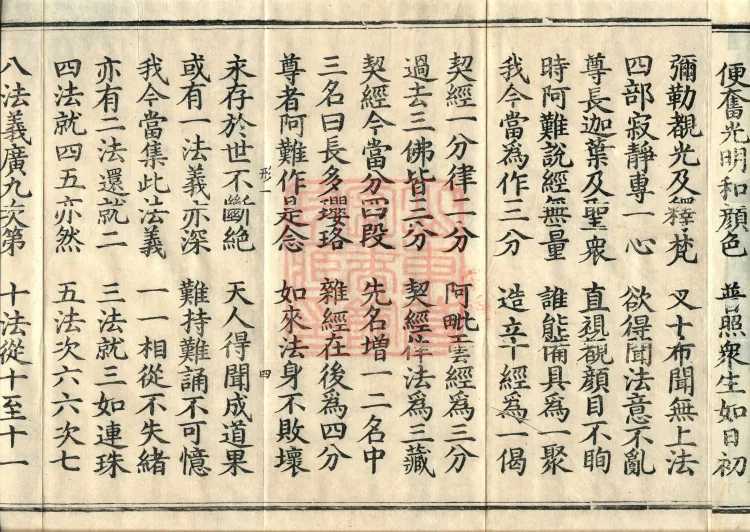 便奮光明和顏色　普照衆生如日初
彌勒覩光及釋梵　叉十布聞無上法
四部寂靜專一心　欲得聞法意不亂
尊長迦葉及聖衆　直視覩顏目不眴
時阿難說經無量　誰能備具爲一聚
我今當爲作三分　造立十經爲一偈
契經一分律二分　阿毗曇經爲三分
過去三佛皆三分　契經律法爲三藏
契經今當分四段　先名增一二名中
三名曰長多瓔珞　雜經在後爲四分
尊者阿難作是念　如來法身不敗壞
形一　四
永存於世不斷絕　天人得聞成道果
或有一法義亦深　難持難誦不可憶
我今當集此法義　一一相從不失緒
亦有二法還就二　三法就三如連珠
四法就四五亦然　五法次六六次七
八法義廣九次第　十法從十至十一